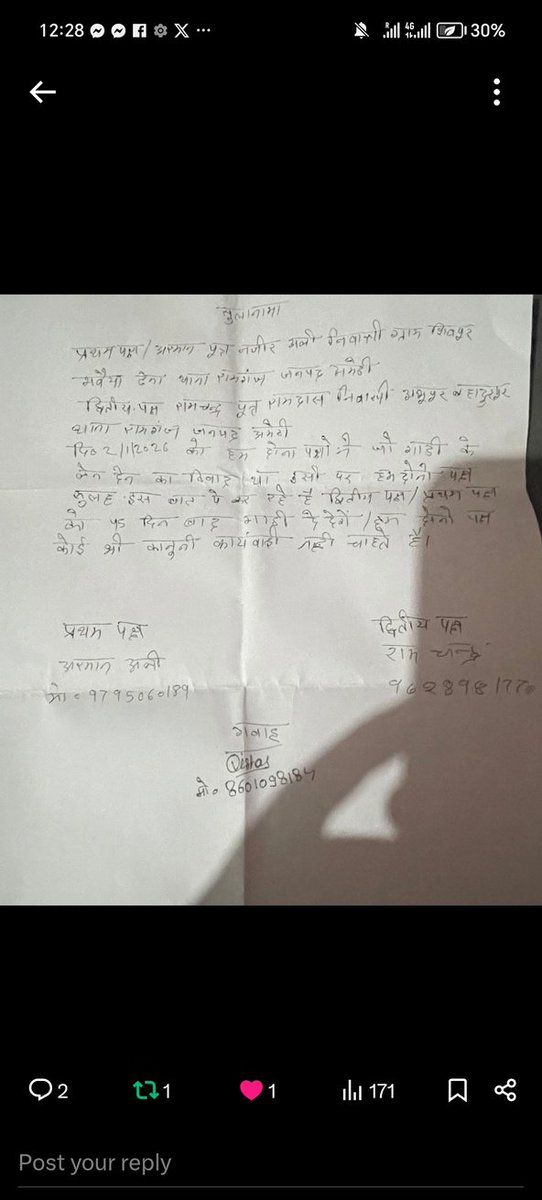 12:28
4G
30%
सुलानामा
प्रथम पक्ष/ अरमान पुत्र नजीर अली निवासी ग्राम शिवपुर
मवैया देना थाना रामगंज जनपद अमेठी
द्वितीय पक्ष रामचन्द्र पुत्र रामदास निवासी बहादुरपुर
थाना रामगंज जनपद अमेठी
दि० 2/1/2026 को हम दोनो पक्षो में जो गाडी के
लेन देन का विवाद था इसी पर हम दोनो पक्ष
सुलह इस बात पे कर रहे है द्वितीय पक्ष/प्रथम पक्ष
को 45 दिन बाद गाडी दे देगें/ हम दोनो पक्ष
कोई भी कानुनी कार्यवाही नही चाहते है।
प्रथम पक्ष
अरमान अली
मो० 9795060189
द्वितीय पक्ष
राम चन्द्र
गवाह
मो० 8601098184
2
1
1
171
Post your reply